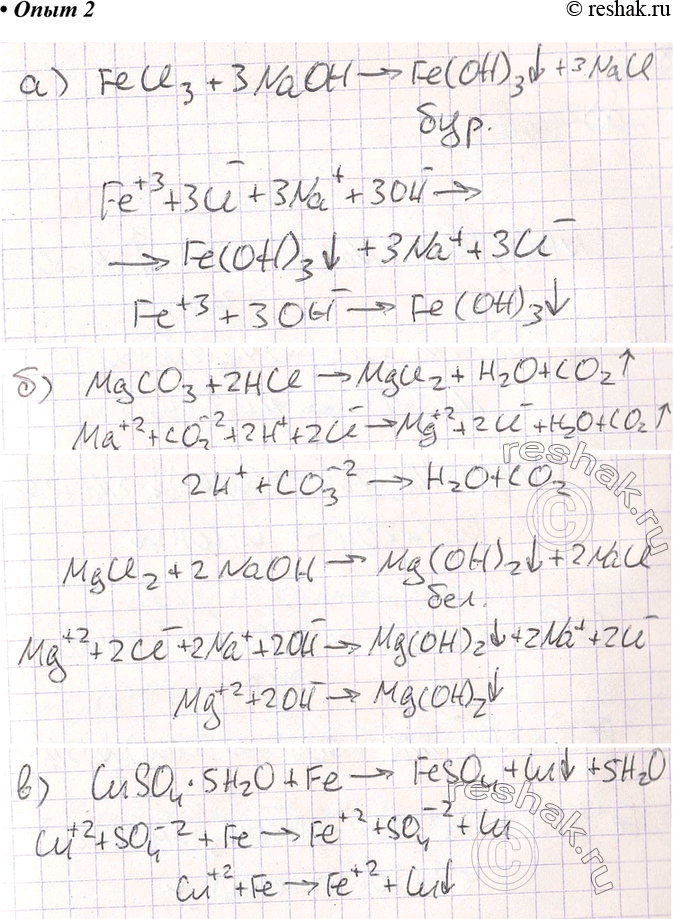 • Опыт 2
© reshak.ru
а) FeCl₃ + 3NaOH → Fe(OH)₃↓ + 3NaCl
бур.
Fe⁺³ + 3Cl⁻ + 3Na⁺ + 3OH⁻ →
→ Fe(OH)₃↓ + 3Na⁺ + 3Cl⁻
Fe⁺³ + 3OH⁻ → Fe(OH)₃↓
б) MgCO₃ + 2HCl → MgCl₂ + H₂O + CO₂↑
Ma⁺² + CO₂⁻² + 2H⁺ + 2Cl⁻ → Mg⁺² + 2Cl⁻ + H₂O + CO₂↑
2H⁺ + CO₃⁻² → H₂O + CO₂
MgCl₂ + 2NaOH → Mg(OH)₂↓ + 2NaCl
бел.
Mg⁺² + 2Cl⁻ + 2Na⁺ + 2OH⁻ → Mg(OH)₂↓ + 2Na⁺ + 2Cl⁻
Mg⁺² + 2OH⁻ → Mg(OH)₂↓
в) CuSO₄·5H₂O + Fe → FeSO₄ + Cu↓ + 5H₂O
Cu⁺² + SO₄⁻² + Fe → Fe⁺² + SO₄⁻² + Cu
Cu⁺² + Fe → Fe⁺² + Cu↓
reshak.ru
©
reshak.ru
©